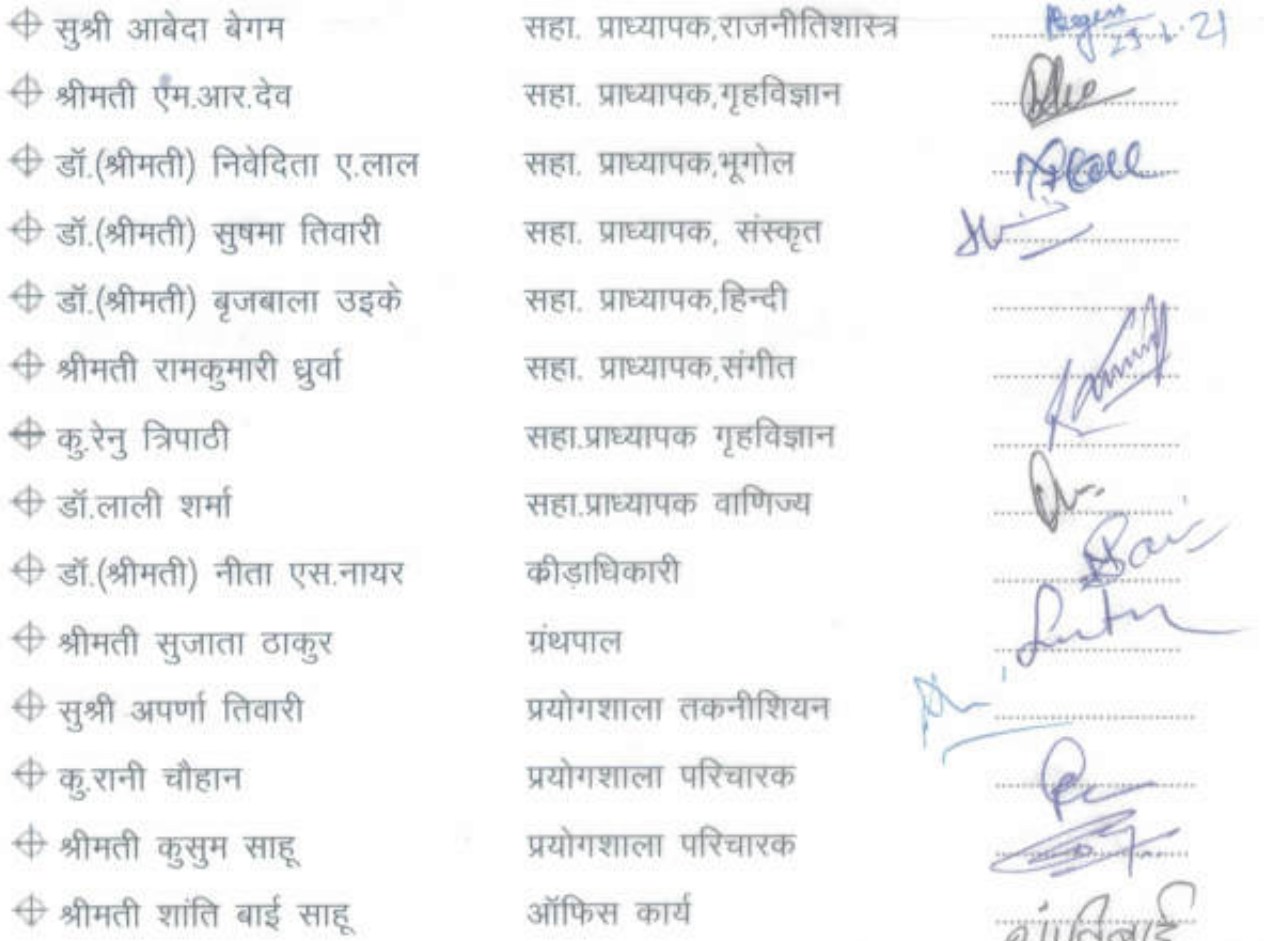 सुश्री आबेदा बेगम सहा. प्राध्यापक,राजनीतिशास्त्र Begem
श्रीमती एम.आर.देव सहा. प्राध्यापक,गृहविज्ञान
डॉ.(श्रीमती) निवेदिता ए.लाल सहा. प्राध्यापक,भूगोल
डॉ.(श्रीमती) सुषमा तिवारी सहा. प्राध्यापक, संस्कृत
डॉ.(श्रीमती) बृजबाला उइके सहा. प्राध्यापक,हिन्दी
श्रीमती रामकुमारी धुर्वा सहा. प्राध्यापक,संगीत
कु.रेनु त्रिपाठी सहा.प्राध्यापक गृहविज्ञान
डॉ.लाली शर्मा सहा.प्राध्यापक वाणिज्य
डॉ.(श्रीमती) नीता एस.नायर कीड़ाधिकारी
श्रीमती सुजाता ठाकुर ग्रंथपाल
सुश्री अपर्णा तिवारी प्रयोगशाला तकनीशियन
कु.रानी चौहान प्रयोगशाला परिचारक
श्रीमती कुसुम साहू प्रयोगशाला परिचारक
श्रीमती शांति बाई साहू ऑफिस कार्य शांतिबाई